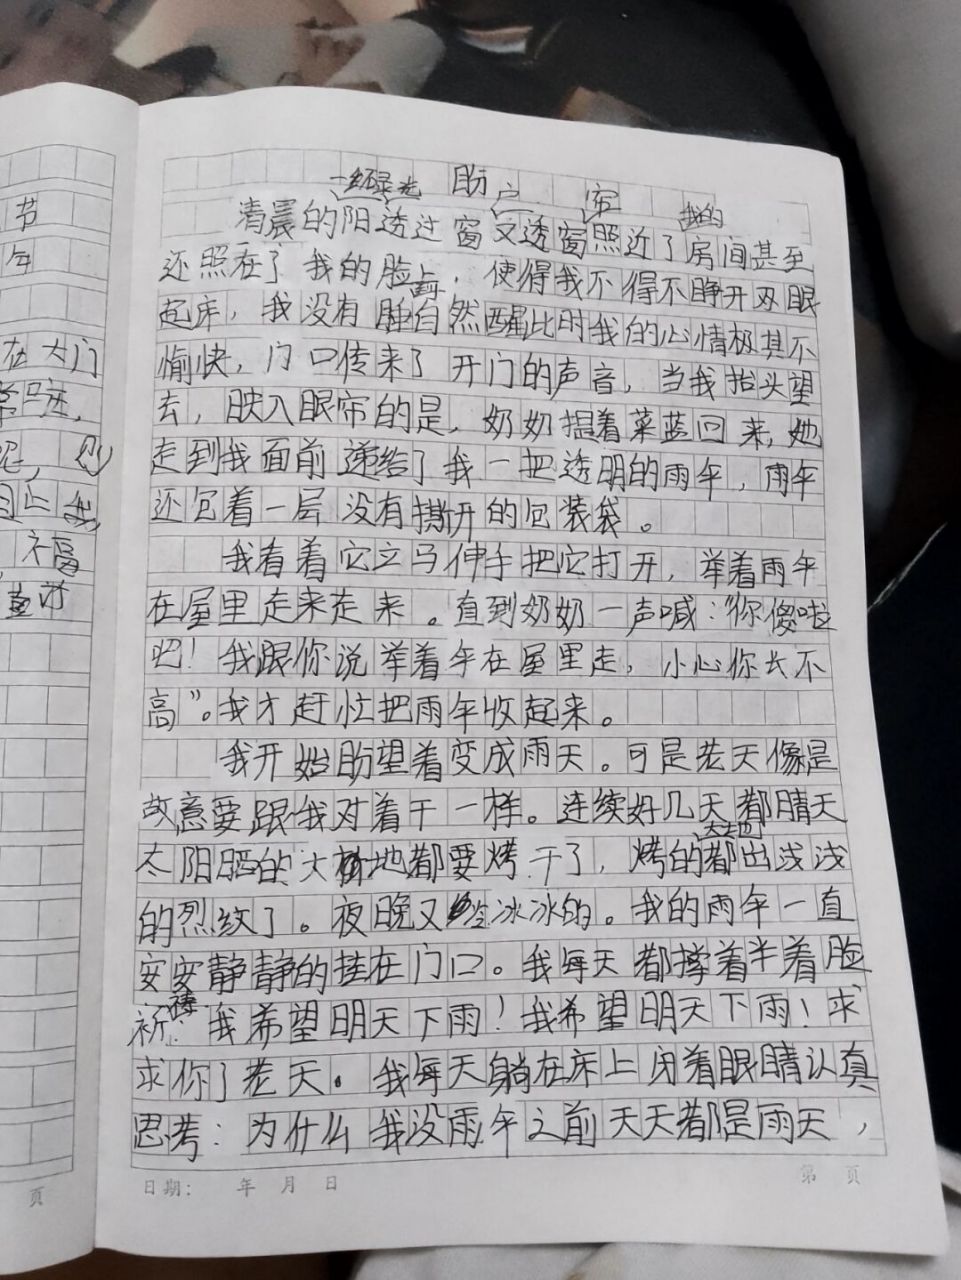 盼
一缕阳光 户 帘 我的
清晨的阳透过窗又透窗照近了房间甚至
还照在了我的脸上，使得我不得不睁开双眼
起床，我没有睡自然醒比时我的心情极其不
愉快，门口传来了开门的声音，当我抬头望
去，映入眼帘的是，奶奶提着菜蓝回来，她
走到我面前递给了我一把透明的雨伞，雨伞
还包着一层没有撕开的包装袋。
我看着它立马伸手把它打开，举着雨伞
在屋里走来走来。直到奶奶一声喊："你傻啦
吧！我跟你说举着伞在屋里走，小心你长不
高"。我才赶忙把雨伞收起来。
我开始盼望着变成雨天。可是老天像是
故意要跟我对着干一样。连续好几天都晴天
太阳晒的大地都要烤干了，烤的大地都出浅浅
的烈纹了。夜晚又冷冰冰的。我的雨伞一直
安安静静的挂在门口。我每天都撑着半着脸
祈祷：我希望明天下雨！我希望明天下雨！求
求你了老天。我每天躺在床上闭着眼睛认真
思考：为什么我没雨伞之前天天都是雨天，
日期： 年 月 日
第 页
节
年
在大门
不福
页